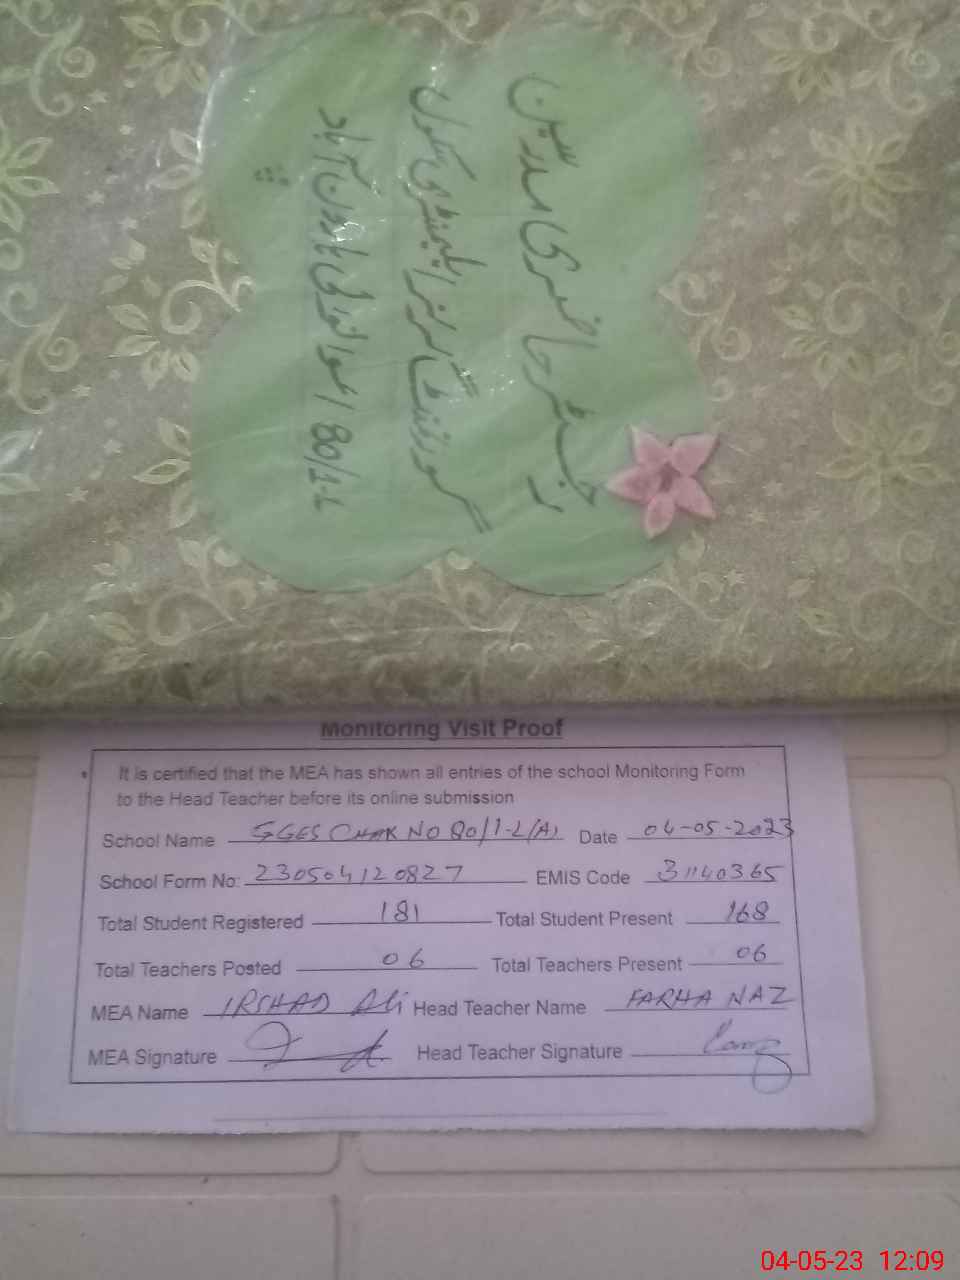 رجسٹر حاضری مدرسین
گورنمنٹ گرلز ایلیمنٹری سکول
80/1-L
Monitoring Visit Proof
It is certified that the MEA has shown all entries of the school Monitoring Form
to the Head Teacher before its online submission
School Name GGES CHAK NO 80/1-L/(A) Date 04-05-2023
School Form No: 230504120827 EMIS Code 31140365
Total Student Registered 181 Total Student Present 168
Total Teachers Posted 06 Total Teachers Present 06
MEA Name IRSHAD Ali Head Teacher Name FARHA NAZ
MEA Signature Head Teacher Signature
04-05-23 12:09